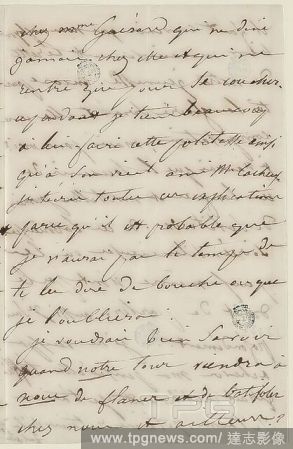 chez mme Guérard qui ne dine
jamais chez elle et qui ne
rentre que pour se coucher
cependant je tiens beaucoup
à lui faire cette politesse ainsi
qu'à son ami Mr
toutes ces explications
parce qu'il est probable que
je n'aurai pas le temps de
te les dire de bouche ou que
je l'oublierai.
je voudrais bien savoir
quand notre tour viendra à
nous de flaner et de
chez nous et ailleurs?
TPG
www.tpgnews.com / 達志影像